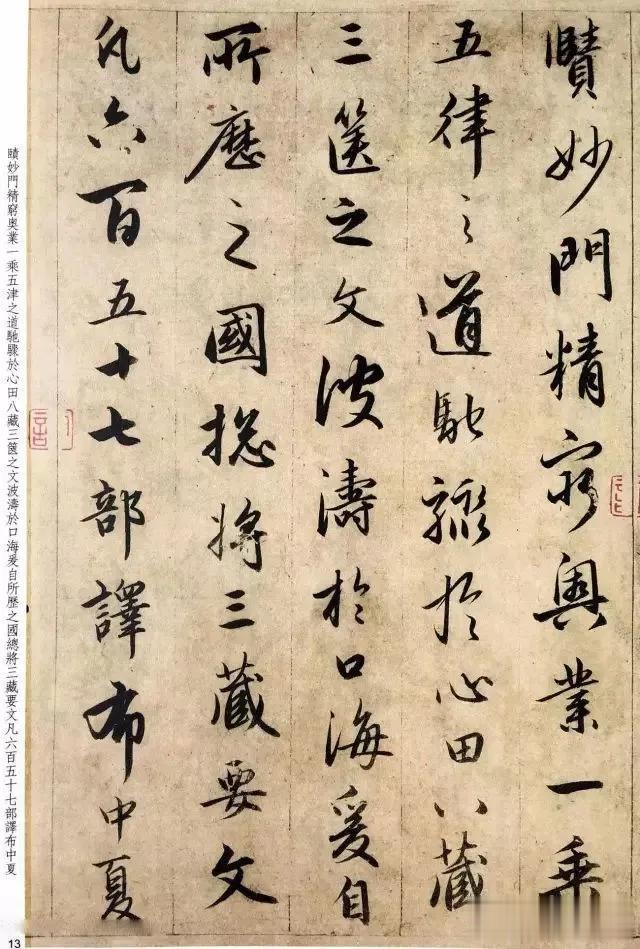 賾妙門精窮奧業一乘
五律之道馳驟於心田八藏
三篋之文波濤於口海爰自
所歷之國總將三藏要文
凡六百五十七部譯布中夏
賾妙門精窮奧業一乘五津之道馳驟於心田八藏三篋之文波濤於口海爰自所歷之國總將三藏要文凡六百五十七部譯布中夏
13